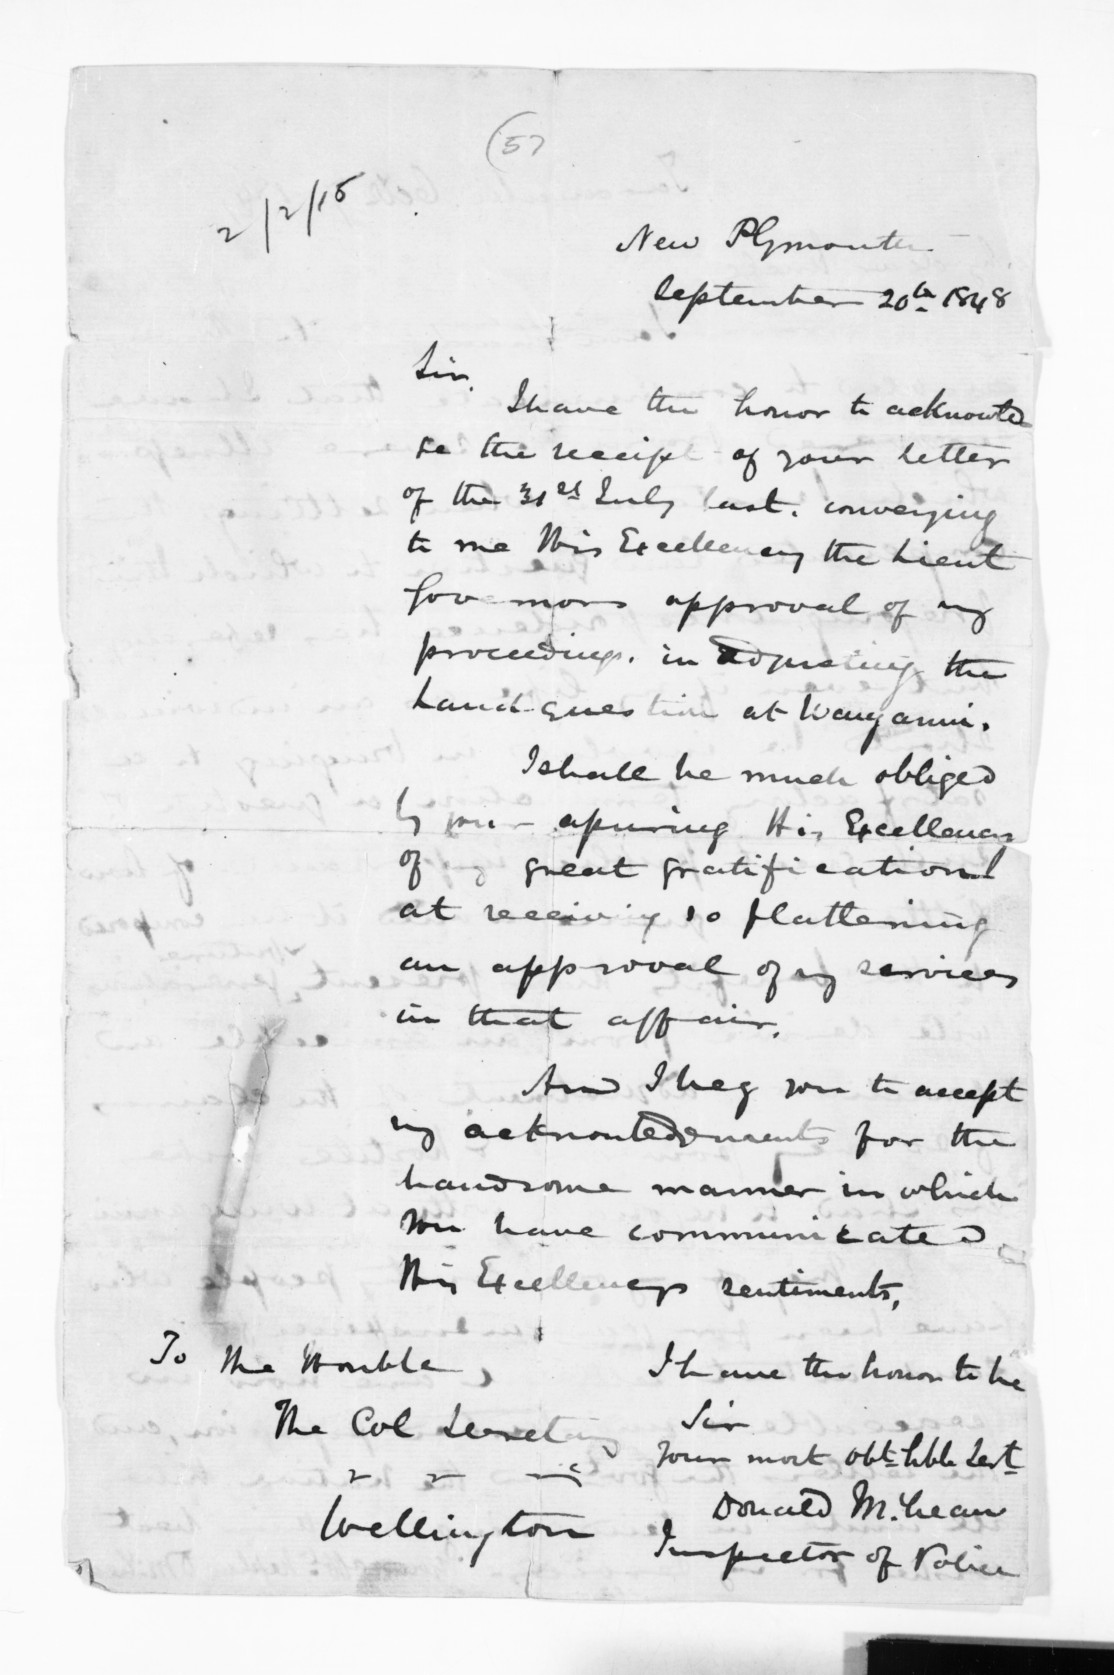 (57
2/2/15
New Plymouth
September 20th 1848
Sir.
I have the honor to acknowled
ge the receipt of your letter
of the 31st July last. conveying
to me His Excellency the Lieut
Governors approval of my
proceedings. in adjusting the
Land question at Wanganui.
I shall be much obliged
by your assuring His Excellency
of my great gratification
at receiving so flattering
an approval of my services
in that affair.
And I beg you to accept
my acknowledgments for the
handsome manner in which
you have communicated
His Excellencys sentiments,
I have the honor to be
Sir
Your most obt. hble Servt.
Donald McLean
Inspector of Police
To The Honble
The Col Secretary
Wellington